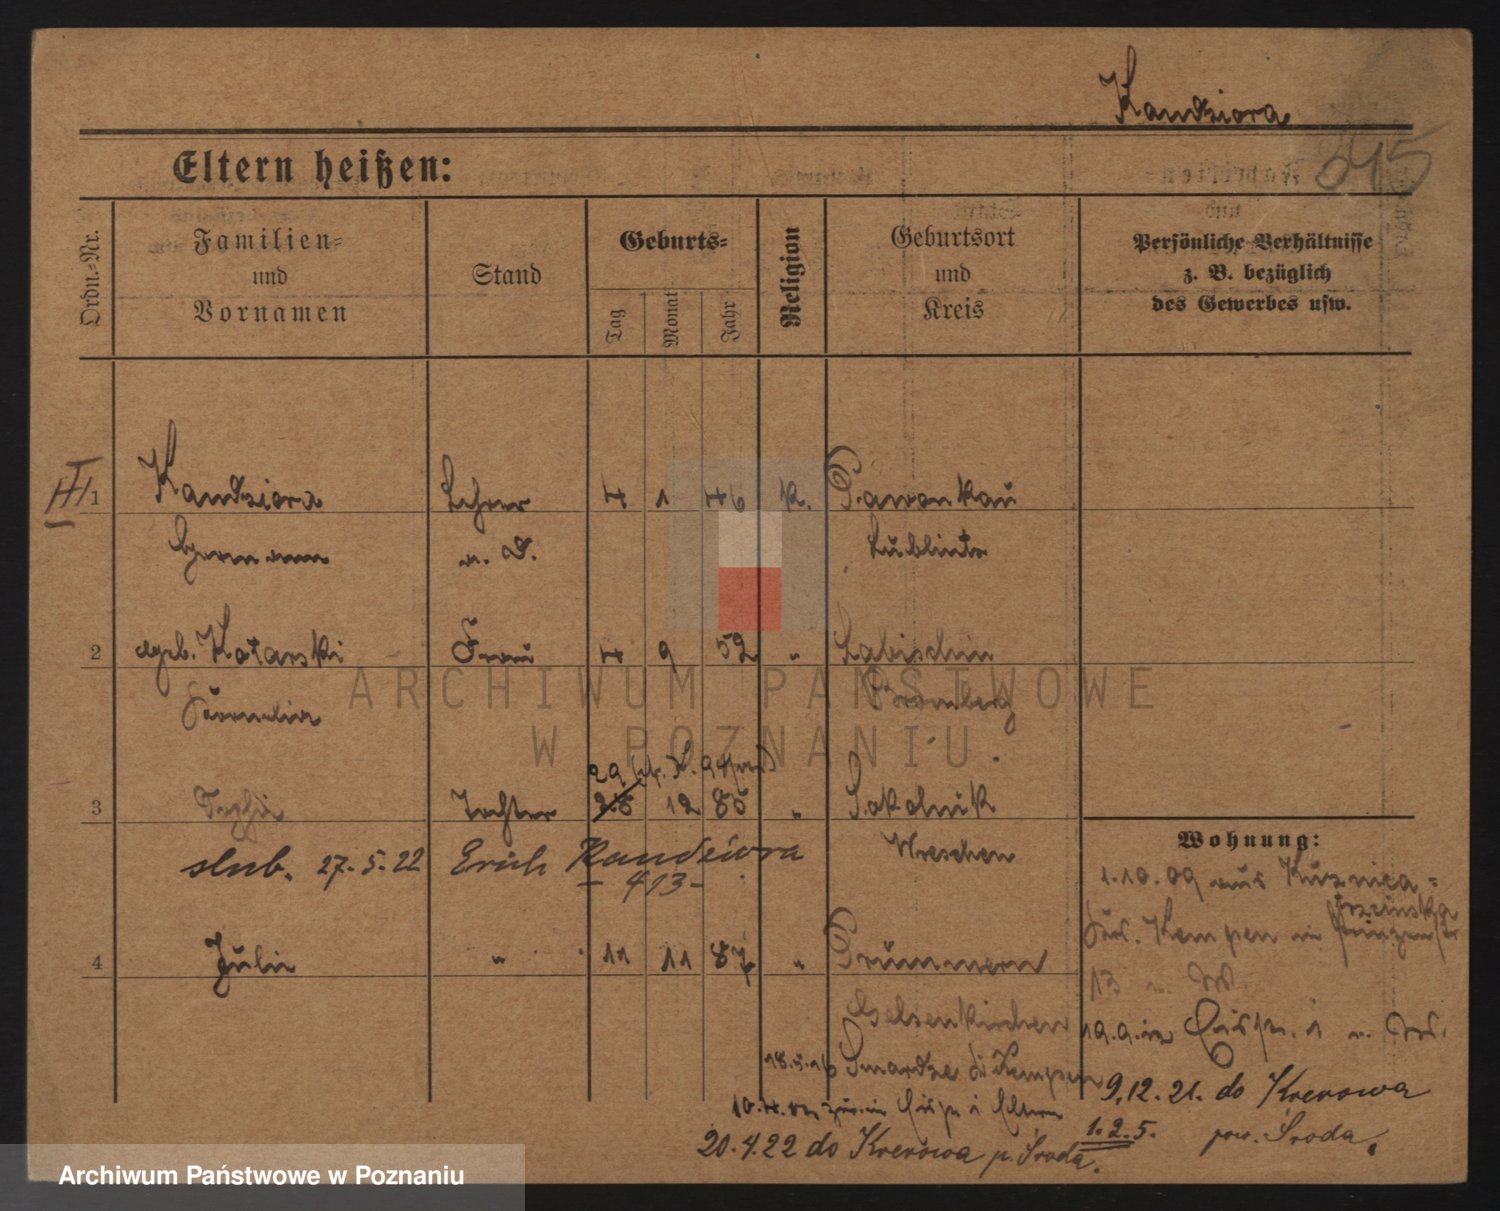 Kandziora
645
Eltern heißen:
Ordn.-Nr.
Familien-
und
Vornamen
Stand
Geburts-
Tag
Monat
Jahr
Religion
Geburtsort
und
Kreis
Persönliche Verhältnisse
z. B. bezüglich
des Gewerbes usw.
III
1 Kandziora Lehrer 4 1 46 K. Pawonkau
Hermann a. D. Lublinitz
2 geb. Kotarski Frau 4 9 52 " Labischin
Kornelia Bromberg
29
3 Sophie Tochter 28 12 85 " Sokolnik
Wreschen
slub. 27.5.22 Erich Kandziora
- 413 -
4 Julie " 11 11 87 "
Gelsenkirchen
18.5.16 Smardze Kempen
Eltern
20.4.22 do Krerowa p. Środa.
Wohnung:
1.10.09 aus Kuznica-
Kempen in
13
19.9.12
9.12.21. do Krerowa
1.2.5. pow. Środa.
ARCHIWUM PAŃSTWOWE
W POZNANIU
Archiwum Państwowe w Poznaniu